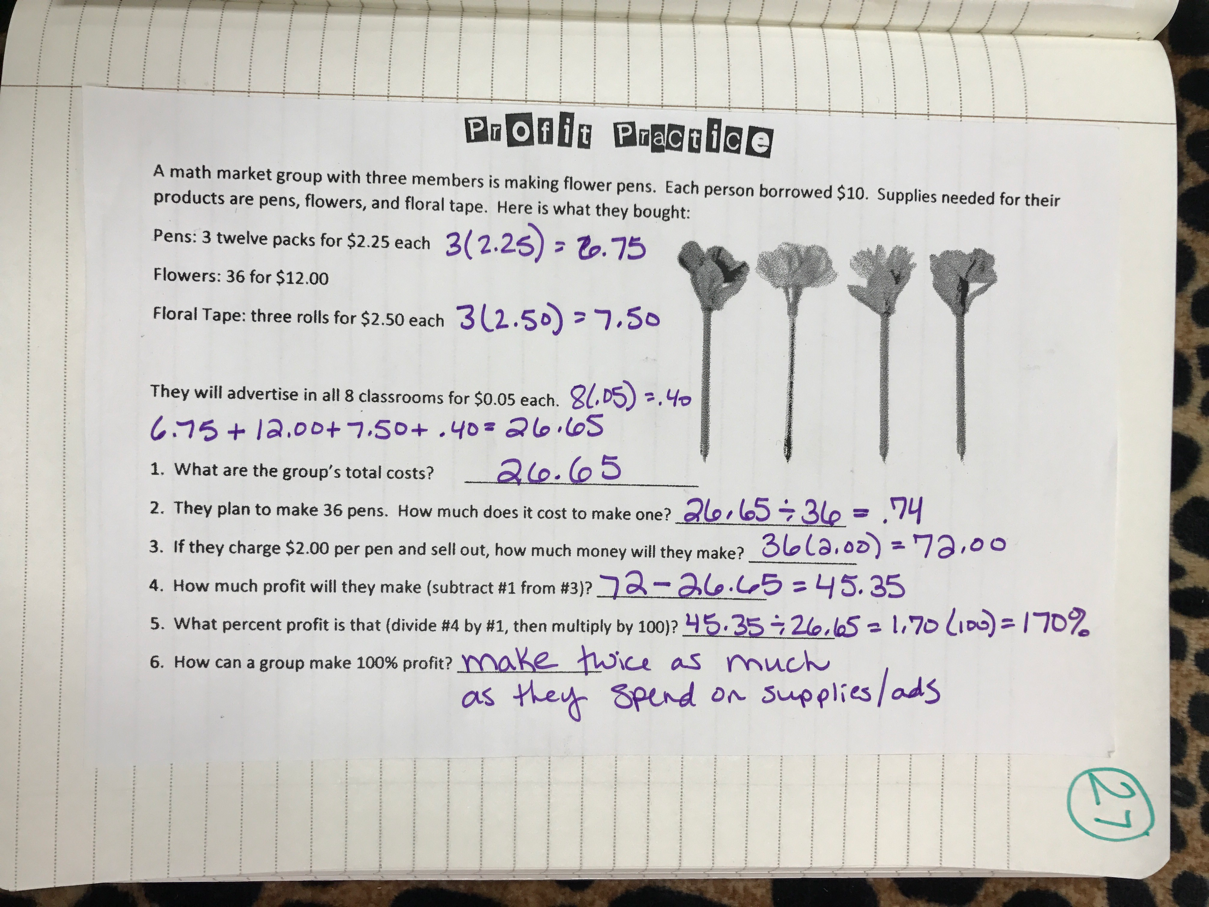 Profit Practice
A math market group with three members is making flower pens. Each person borrowed $10. Supplies needed for their
products are pens, flowers, and floral tape. Here is what they bought:
Pens: 3 twelve packs for $2.25 each 3(2.25) = 6.75
Flowers: 36 for $12.00
Floral Tape: three rolls for $2.50 each 3(2.50) = 7.50
They will advertise in all 8 classrooms for $0.05 each. 8(.05) = .40
6.75 + 12.00 + 7.50 + .40 = 26.65
1. What are the group's total costs? 26.65
2. They plan to make 36 pens. How much does it cost to make one? 26.65 ÷ 36 = .74
3. If they charge $2.00 per pen and sell out, how much money will they make? 36(2.00) = 72.00
4. How much profit will they make (subtract #1 from #3)? 72 - 26.65 = 45.35
5. What percent profit is that (divide #4 by #1, then multiply by 100)? 45.35 ÷ 26.65 = 1.70 (100) = 170%
6. How can a group make 100% profit? make twice as much
as they spend on supplies/ads
27